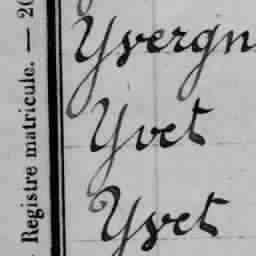 Registre matricule. — 20
Yvergn
Yvet
Yvet